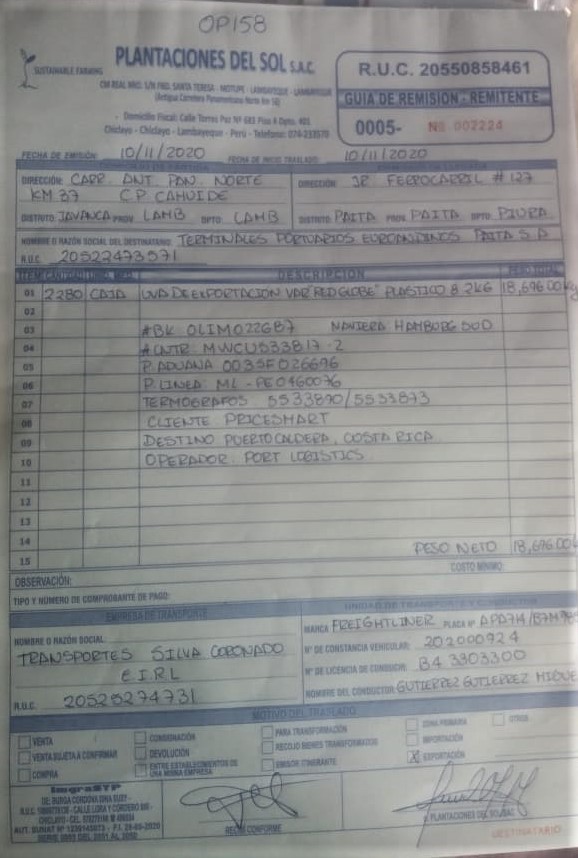 OP158
SUSTAINABLE FARMING
PLANTACIONES DEL SOL S.A.C.
CM REAL NRO. S/N FND. SANTA TERESA - MOTUPE - LAMBAYEQUE - LAMBAYEQUE
(Antigua Carretera Panamericana Norte Km 56)
Domicilio Fiscal: Calle Torres Paz Nº 683 Piso 4 Dpto. 401
Chiclayo - Chiclayo - Lambayeque - Perú - Telefono: 074-233570
R.U.C. 20550858461
GUIA DE REMISIÓN - REMITENTE
0005- Nº 002224
FECHA DE EMISIÓN: 10/11/2020 FECHA DE INICIO TRASLADO: 10/11/2020
DIRECCIÓN: CARR. ANT. PAN. NORTE
KM 37 C.P CAHUIDE
DISTRITO: JAYANCA PROV. LAMB DPTO. LAMB
DIRECCIÓN: JR FERROCARRIL # 127
DISTRITO: PAITA PROV. PAITA DPTO. PIURA
NOMBRE O RAZÓN SOCIAL DEL DESTINATARIO: TERMINALES PORTUARIOS EUROANDINOS PAITA S A
R.U.C. 20522473571
ITEM CANTIDAD UNID. MED. DESCRIPCIÓN PESO TOTAL
01 2280 CAJA UVA DE EXPORTACIÓN VAR "RED GLOBE" PLASTICO 8.2KG 18,696.00 kg
02
03 #BK OLIM022687 NAVIERA HAMBURG SUD
04 #CNTR: MWCU533817-2
05 P. ADUANA 0035F026696
06 P. LINEA: ML-PE0460076
07 TERMOGRAFOS 5533870/5533873
08 CLIENTE PRICESMART
09 DESTINO PUERTO CALDERA, COSTA RICA
10 OPERADOR: PORT LOGISTICS
11
12
13
14 PESO NETO 18,696.00
15 COSTO MÍNIMO
OBSERVACIÓN:
TIPO Y NÚMERO DE COMPROBANTE DE PAGO:
EMPRESA DE TRANSPORTE
NOMBRE O RAZÓN SOCIAL:
TRANSPORTES SILVA CORONADO
E.I.R.L
R.U.C. 20525274731
UNIDAD DE TRANSPORTE Y CONDUCTOR
MARCA FREIGHTLINER PLACA Nº
Nº DE CONSTANCIA VEHICULAR: 202000924
Nº DE LICENCIA DE CONDUCIR: B4 3303300
NOMBRE DEL CONDUCTOR: GUTIERREZ GUTIERREZ
MOTIVO DEL TRASLADO
VENTA
VENTA SUJETA A CONFIRMAR
COMPRA
CONSIGNACIÓN
DEVOLUCIÓN
ENTRE ESTABLECIMIENTOS DE
UNA MISMA EMPRESA
PARA TRANSFORMACIÓN
RECOJO BIENES TRANSFORMADOS
EMISOR ITINERANTE
ZONA PRIMARIA
IMPORTACIÓN
X EXPORTACIÓN
OTROS
ImgraSTP
RECIBÍ CONFORME
PLANTACIONES DEL SOL SAC
DESTINATARIO